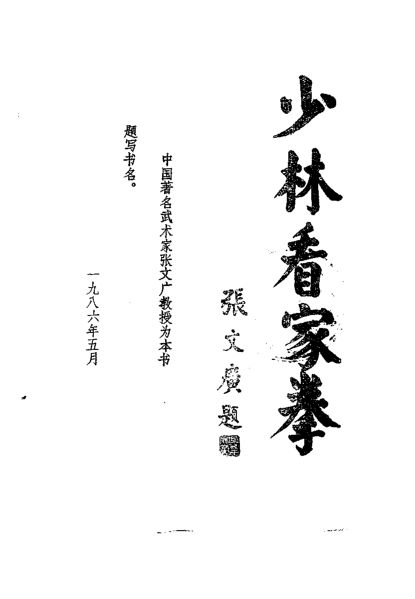 少林看家拳
張文廣題
中国著名武术家张文广教授为本书
题写书名。
一九八六年五月